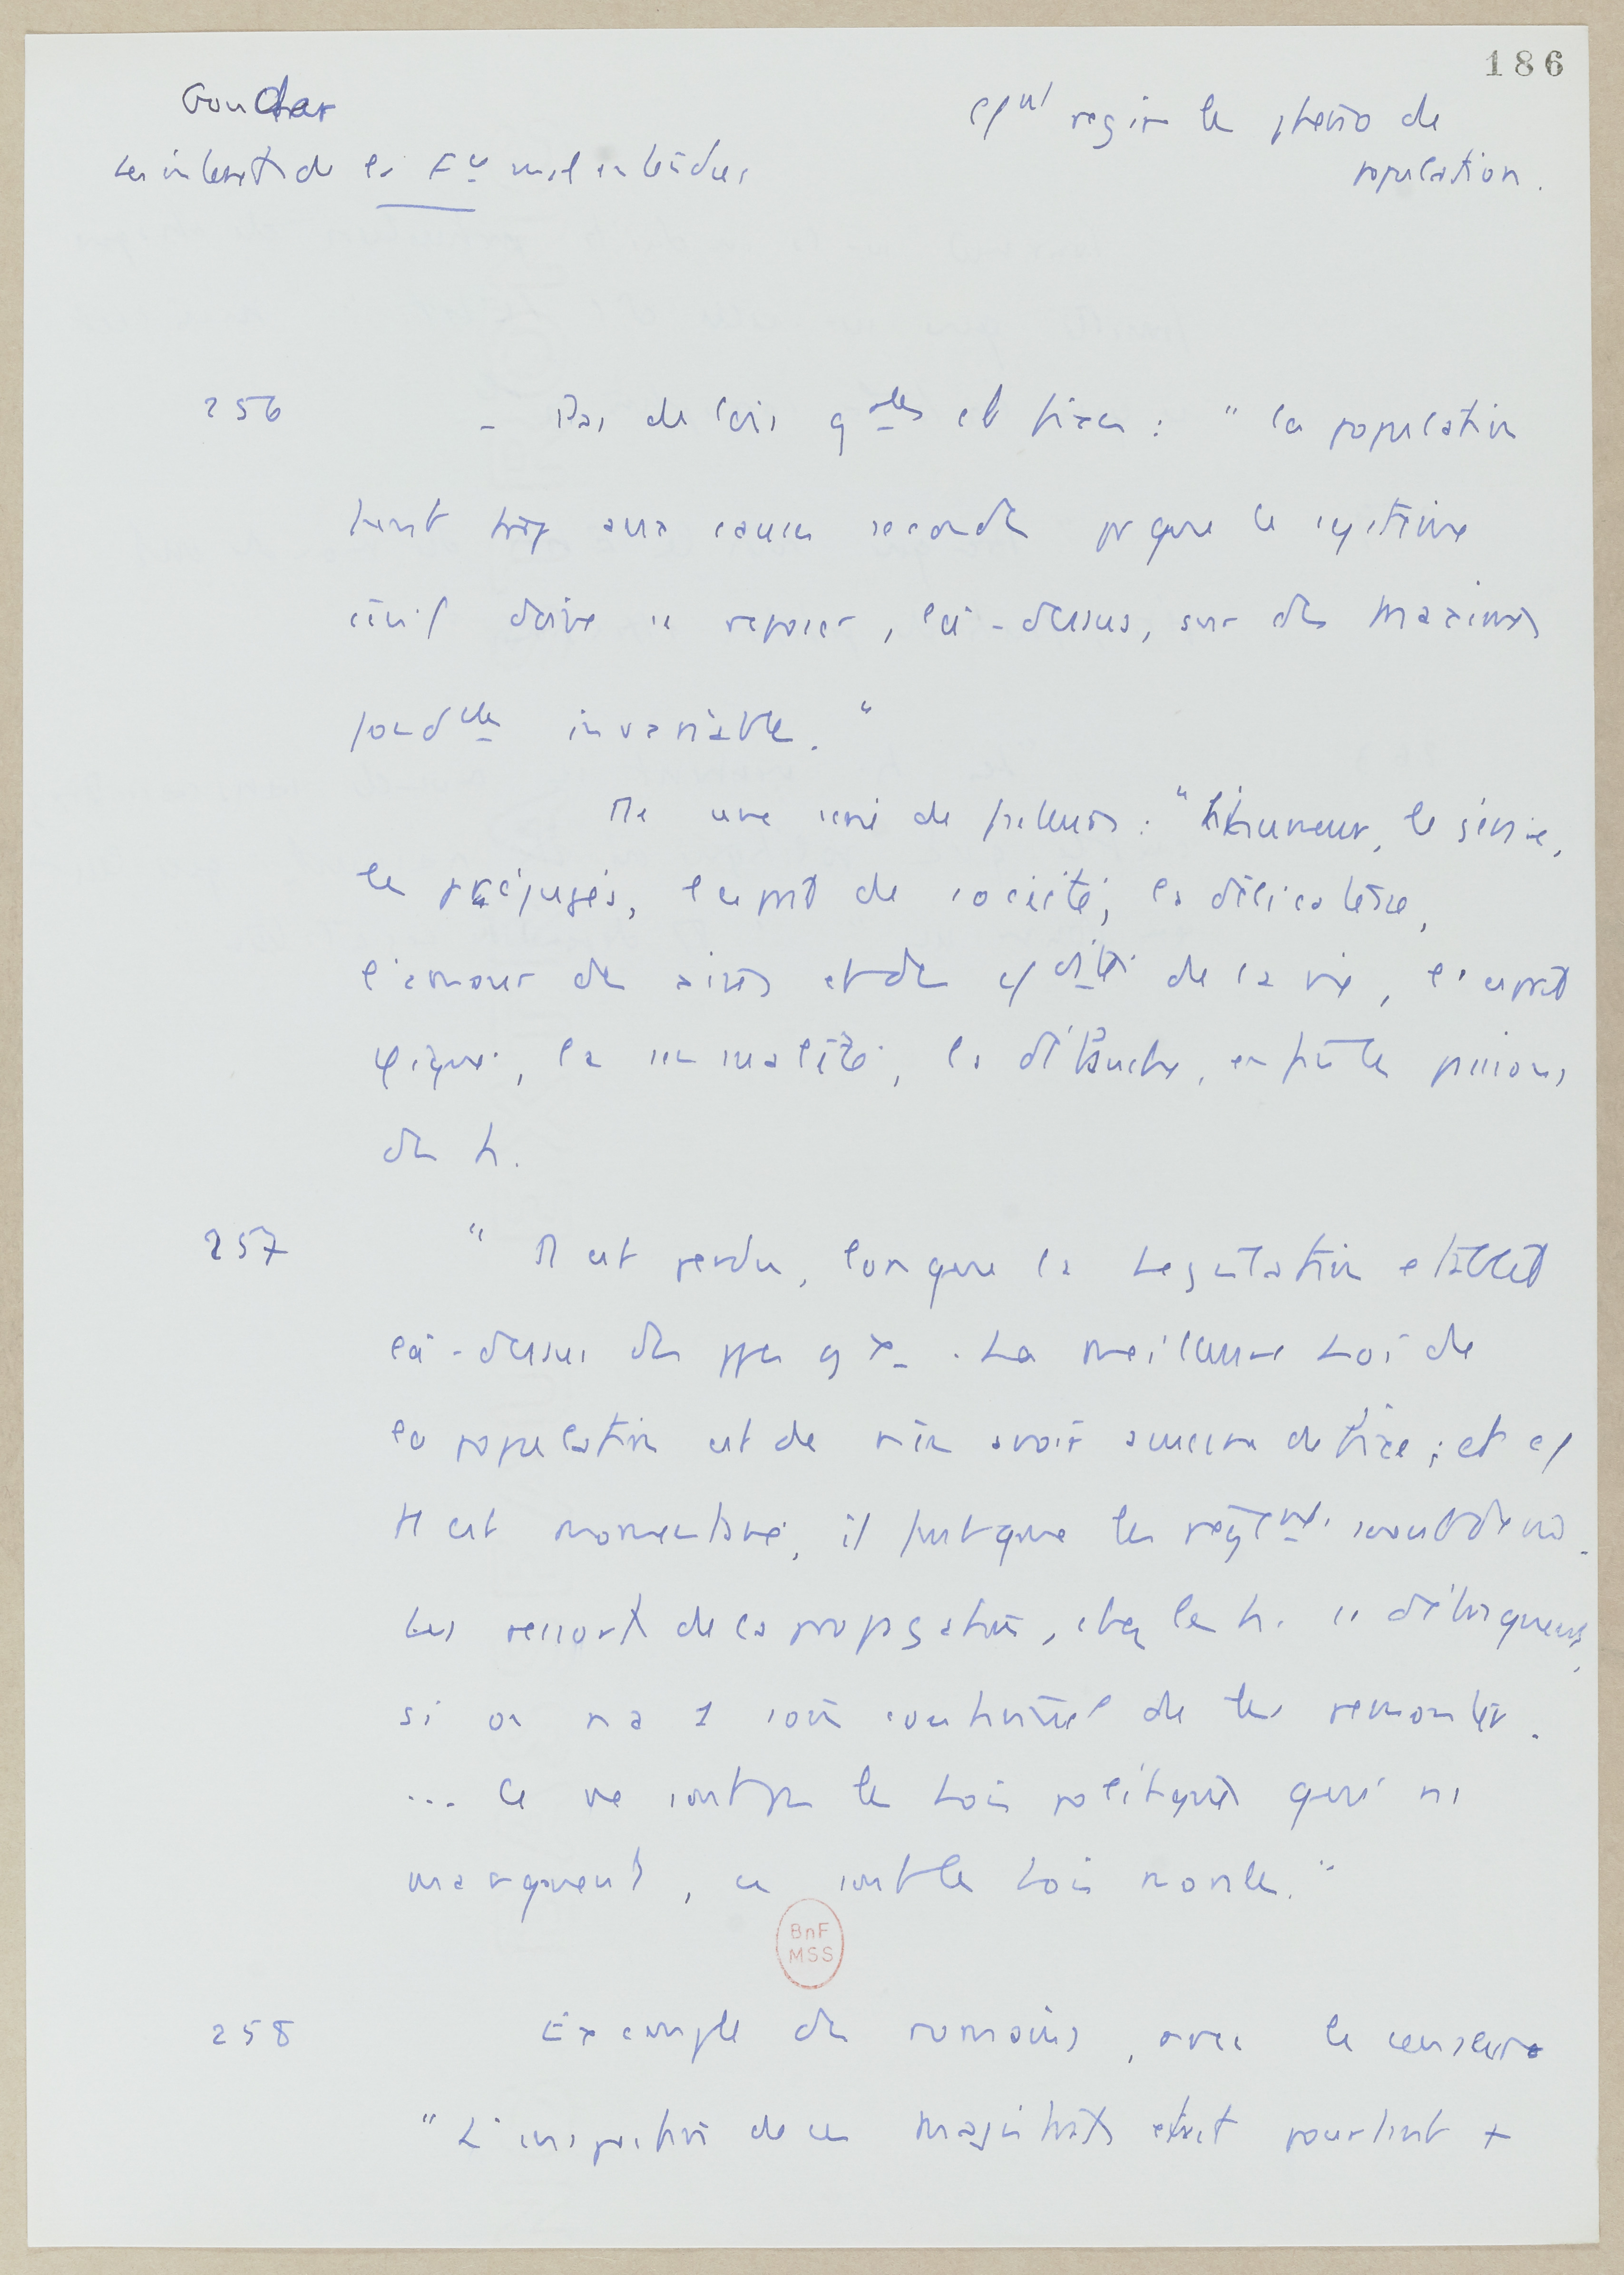 186
Goudar
Les interets de la Fce mal entendus
Cpnt regir le pheno de
population.
256
- Pas de lois gales et fixes : " la population
tient trop aux causes secondes pr que le systeme
civil doive se reposer, là-dessus, sur des maximes
fondles invariables. "
Ms une serie de facteurs : " L'humeur, le génie,
les préjugés, l'esprit de société, la délicatesse,
l'amour des aises et des cdités de la vie, l'esprit
la sensualité, la débauche, enfin les passions
des h.
257
" Tt est perdu, lorsque la Legislation etablit
là-dessus des ppes gx. La meilleure Loi de
la population est de n'en avoir aucune de fixe ; et c/
tt est momentané, il faut que les reglemts soient de m.
Les ressorts de la propagation, chez les h. se détraquent,
si on n'a 1 soin continuel de les remonter.
... Ce ne sont pas les Lois politiques qui ns
manquent, ce sont les Lois morales. "
BnF
MSS
258
Exemple des romains, avec les censeurs
" L'inspection de ces Magistrats etait pourtant +